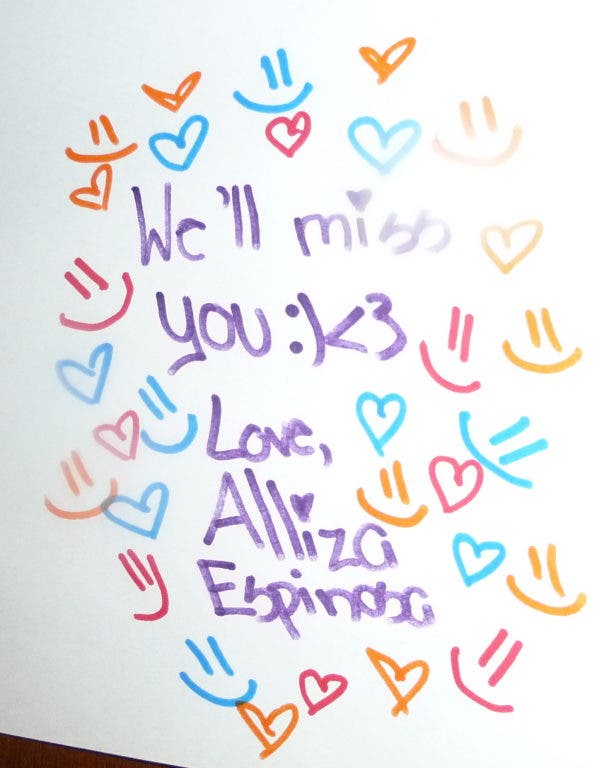 We'll miss
you :)<3
Love,
Alliza
Espinosa